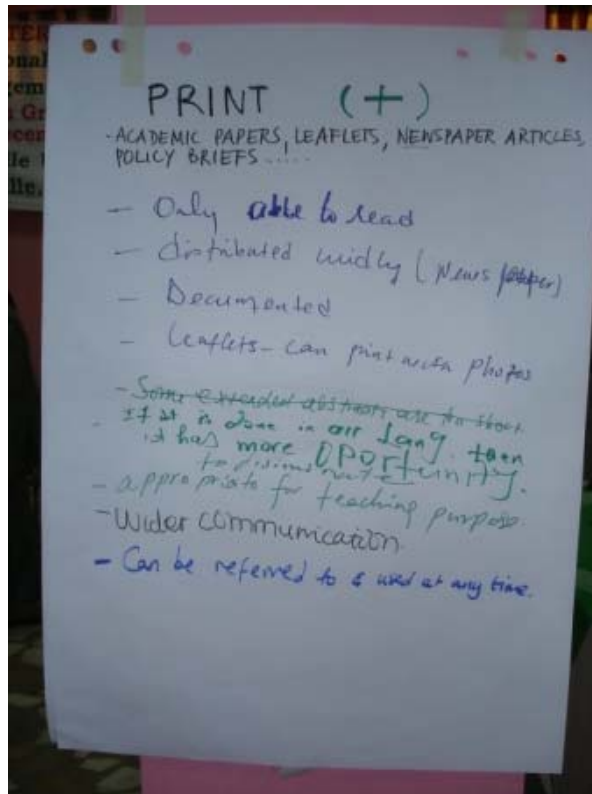 TER
onal
gem
Gr
ecem
lle
PRINT (+)
- ACADEMIC PAPERS, LEAFLETS, NEWSPAPER ARTICLES,
POLICY BRIEFS .....
- Only able to read
- distributed widly (News paper)
- Documented
- Leaflets - can print with photos
- Some extended abstracts are too short
- If it is done in our Lang. then
it has more OPORtunity.
to
- appropriate for teaching purpose.
- Wider communication.
- Can be referred to & used at any time.